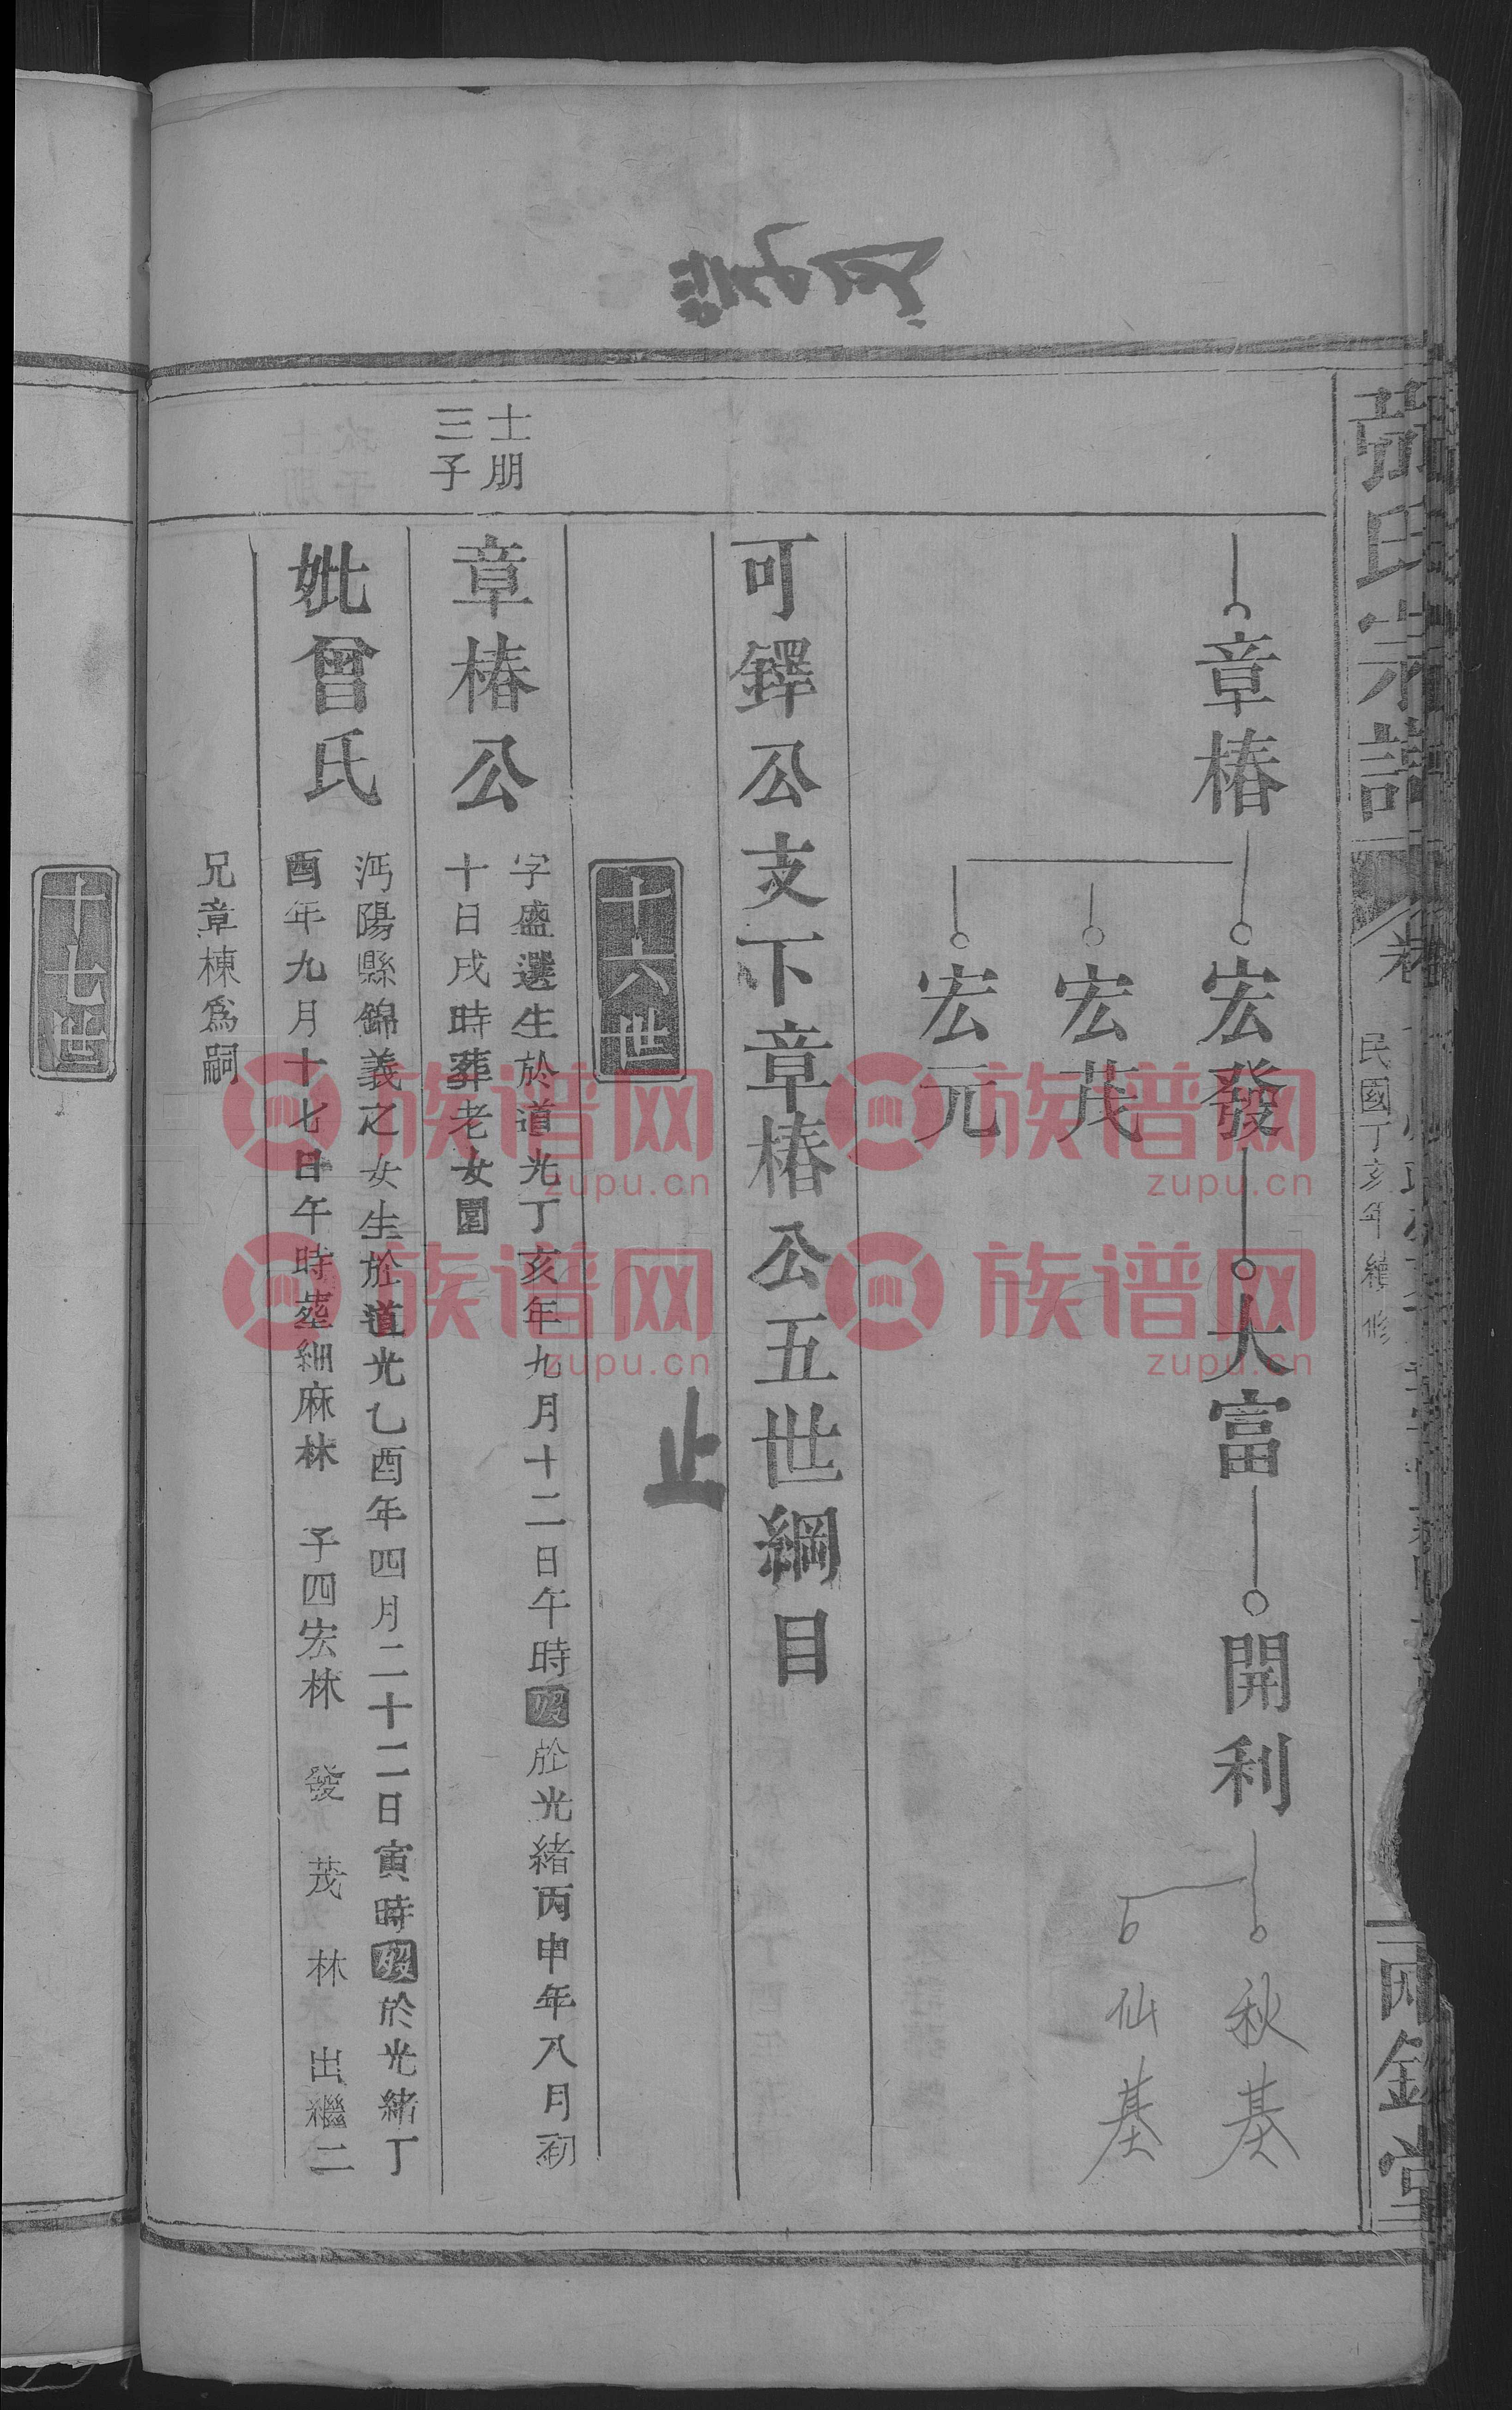 張氏宗譜
卷
民國丁亥年續修
兩銘堂
章椿
宏發
大富
開利
秋基
仙基
宏茂
宏元
可鐸公支下章椿公五世綱目
十六世
止
士朋
三子
章椿公
字盛選生於道光丁亥年九月十二日午時歿於光緒丙申年八月初
十日戌時葬老女園
妣曾氏
沔陽縣錦義之女生於道光乙酉年四月二十二日寅時歿於光緒丁
酉年九月十七日午時塟細麻林 子四宏林 發 茂 林 出繼二
兄章棟爲嗣
十七世
族谱网
zupu.cn
族谱网
zupu.cn
族谱网
zupu.cn
族谱网
zupu.cn